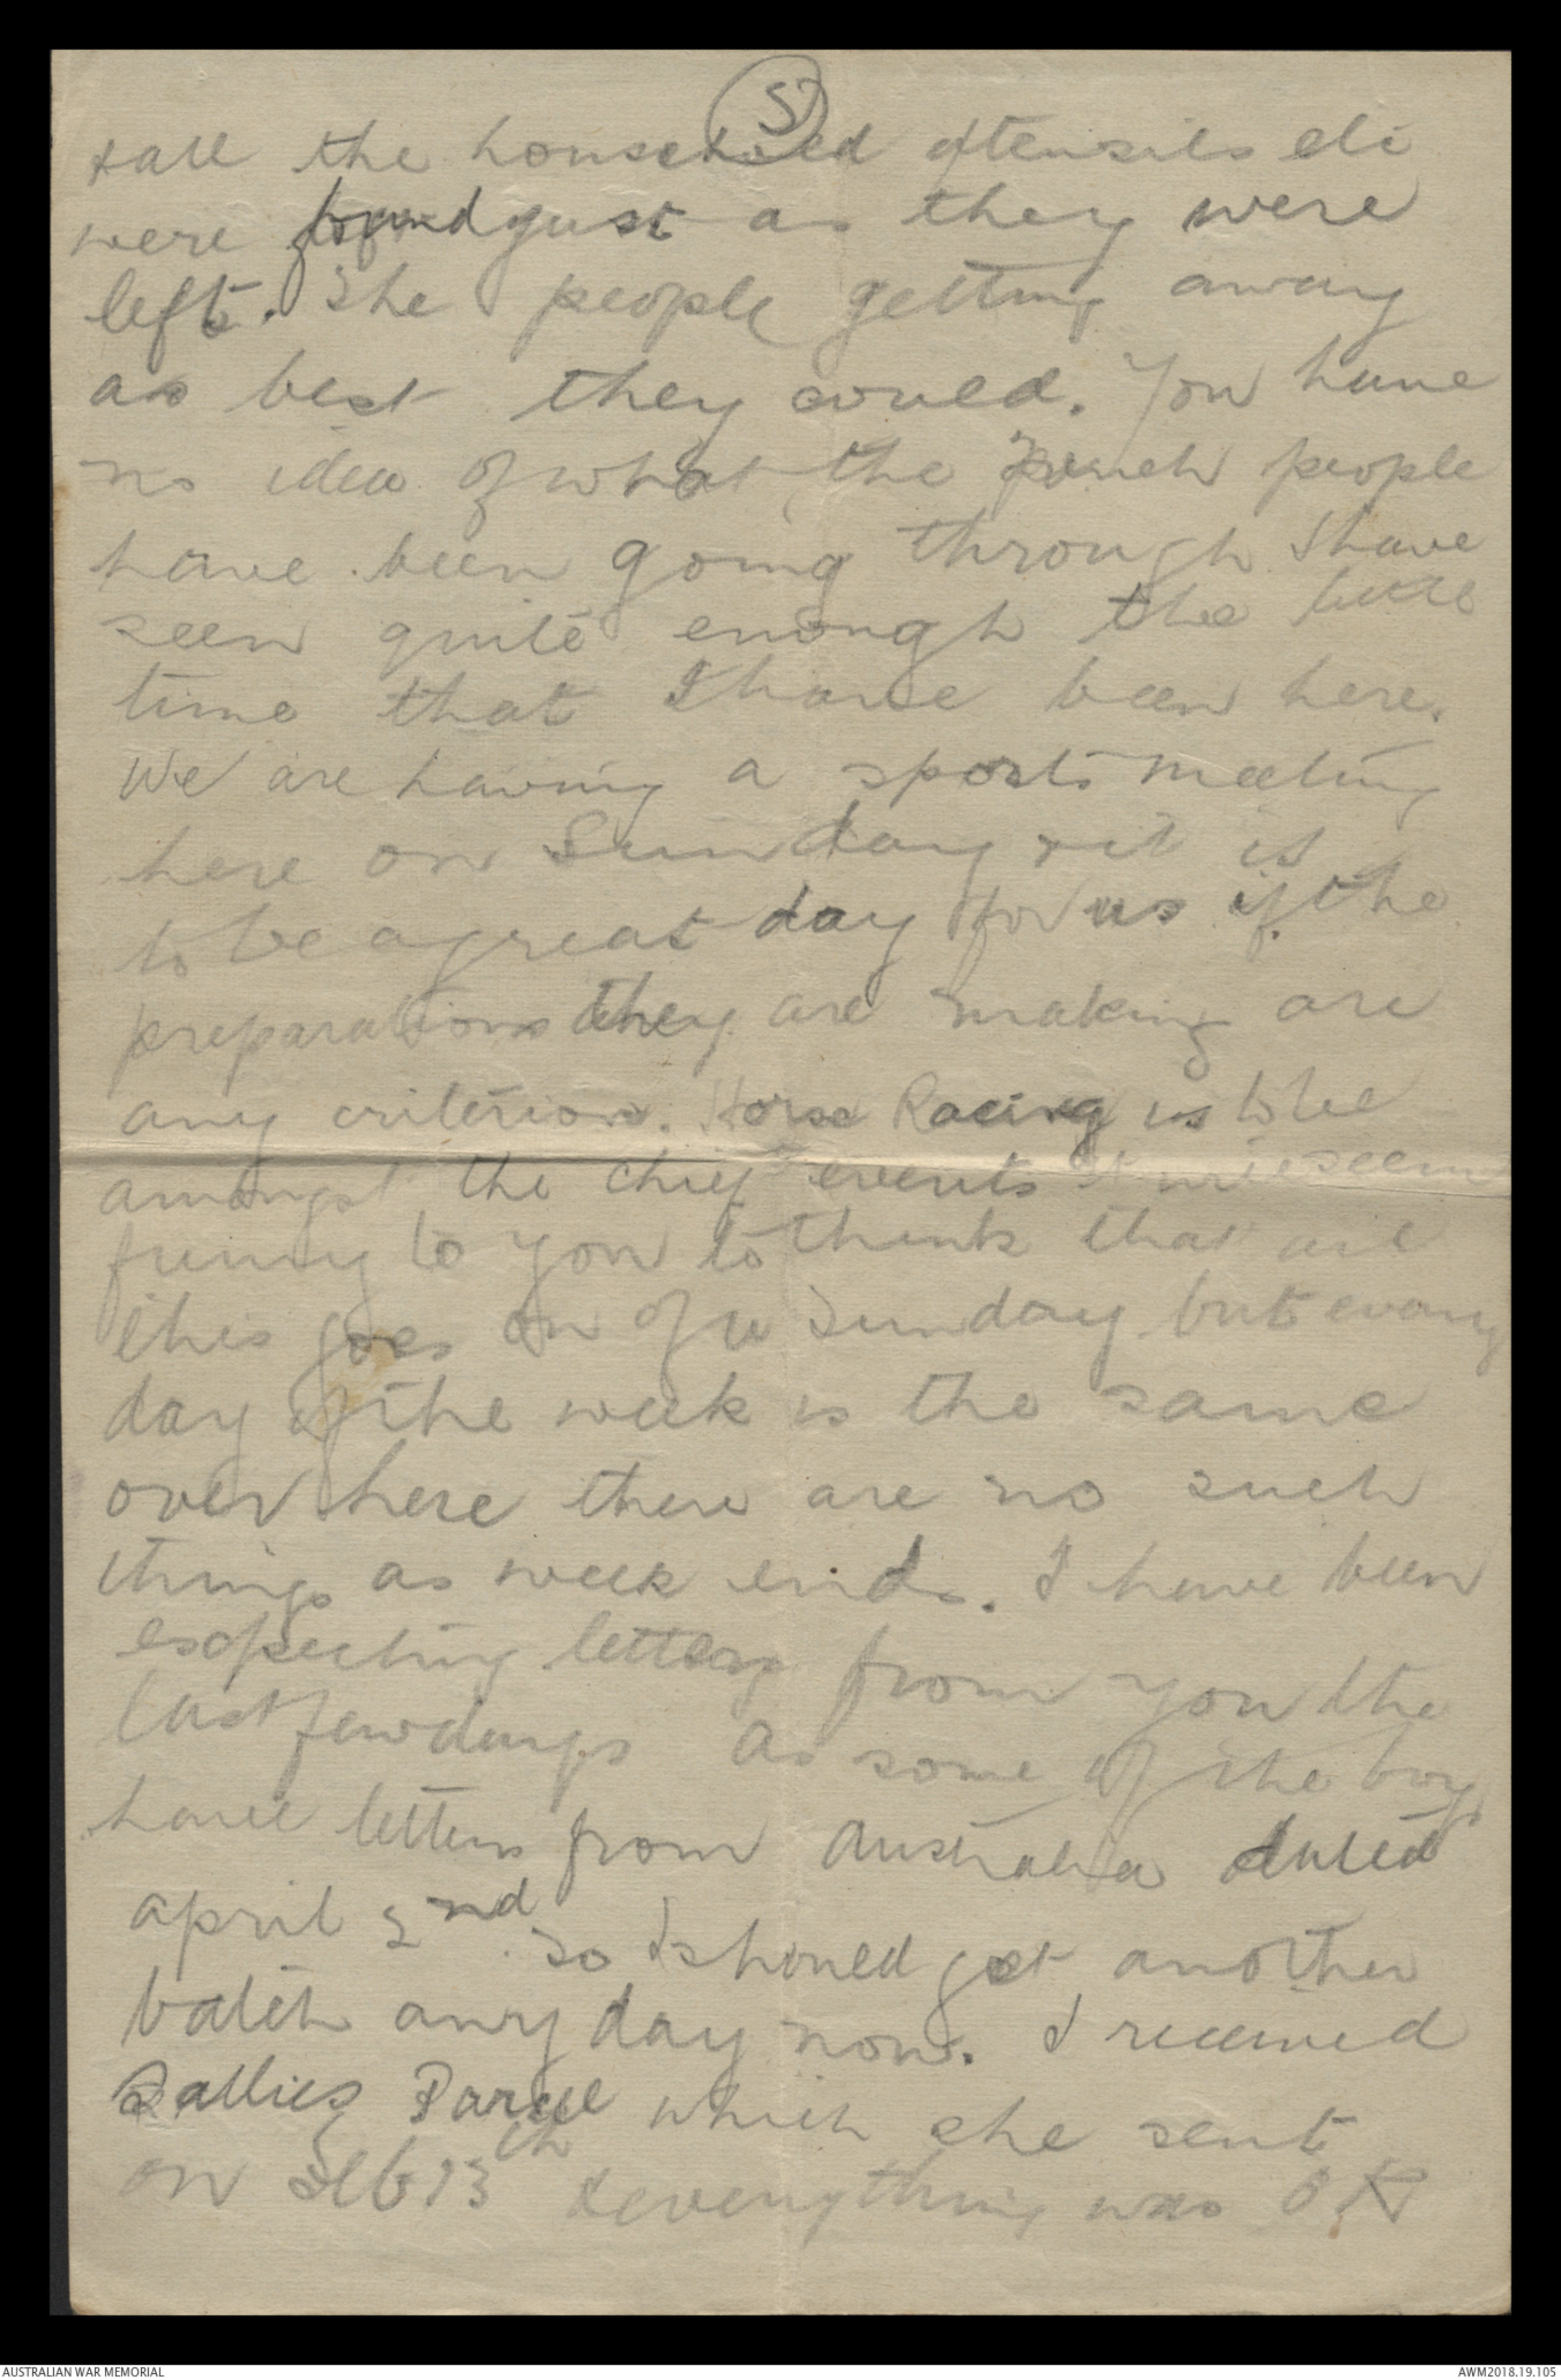 5
& all the household utensils etc
were found just as they were
left. The people getting away
as best they could. You have
no idea of what the French people
have been going through I have
seen quite enough the little
time that I have been here.
We are having a sports meeting
here on Sunday & it is
to be a great day for us if the
preparations they are making are
any criterion. Horse Racing is to be
amongst the chief events It will seem
funny to you to think that all
this goes on of a Sunday but every
day of the week is the same
over here there are no such
things as week ends. I have been
expecting letters from you the
last few days as some of the boys
have letters from Australia dated
april 2nd so I should get another
batch any day now. I received
Sallies Parcel which she sent
on Feb 13th & everything was OK
AUSTRALIAN WAR MEMORIAL
AWM2018.19.105